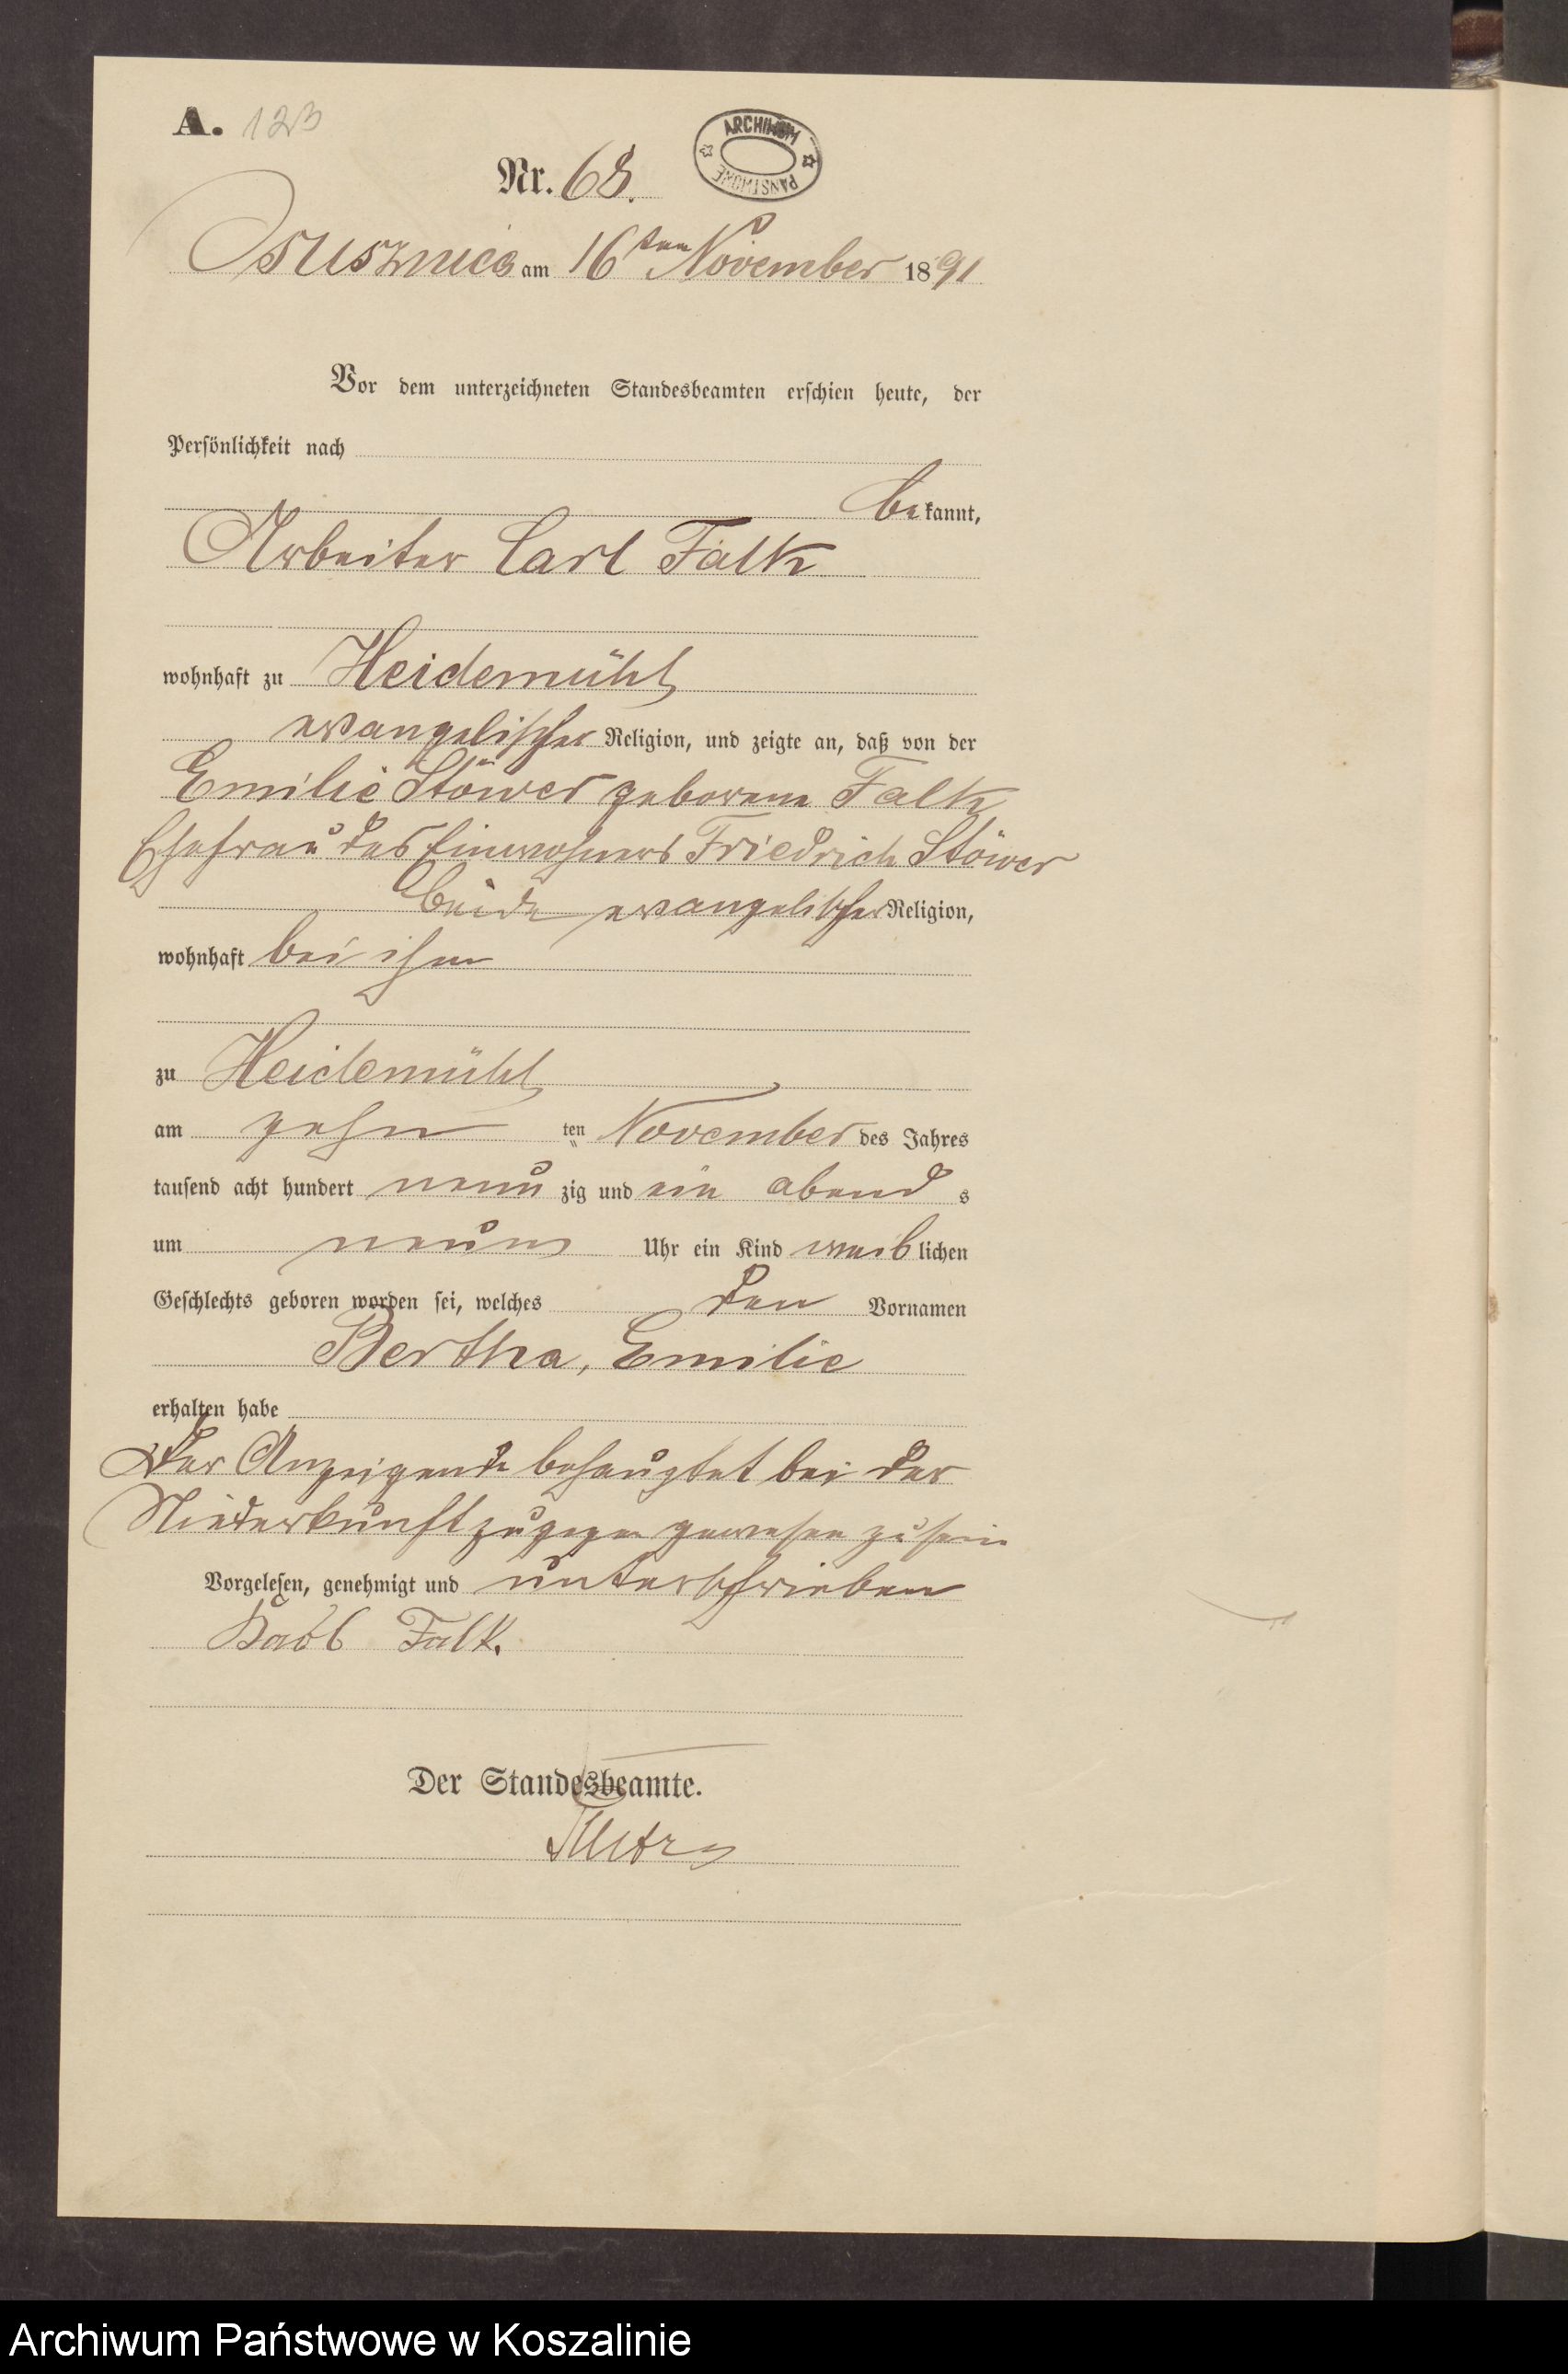 A. 123
ARCHIWUM PAŃSTWOWE
Nr. 68.
am 16ten November 1891
Vor dem unterzeichneten Standesbeamten erschien heute, der
Persönlichkeit nach
bekannt,
Arbeiter Carl Falk
wohnhaft zu Heidemühl
evangelischer Religion, und zeigte an, daß von der
Emilie Stöwer geborene Falk
Ehefrau des Einwohners Friedrich Stöwer
beide evangelischer Religion,
wohnhaft bei ihm
zu Heidemühl
am zehn ten November des Jahres
tausend acht hundert neun zig und ein abend s
um neun Uhr ein Kind weiblichen
Geschlechts geboren worden sei, welches den Vornamen
Bertha, Emilie
erhalten habe
Der Anzeigende behauptet bei der
Niederkunft zugegen gewesen zu sein
Vorgelesen, genehmigt und unterschrieben
Falk.
Der Standesbeamte.
Archiwum Państwowe w Koszalinie